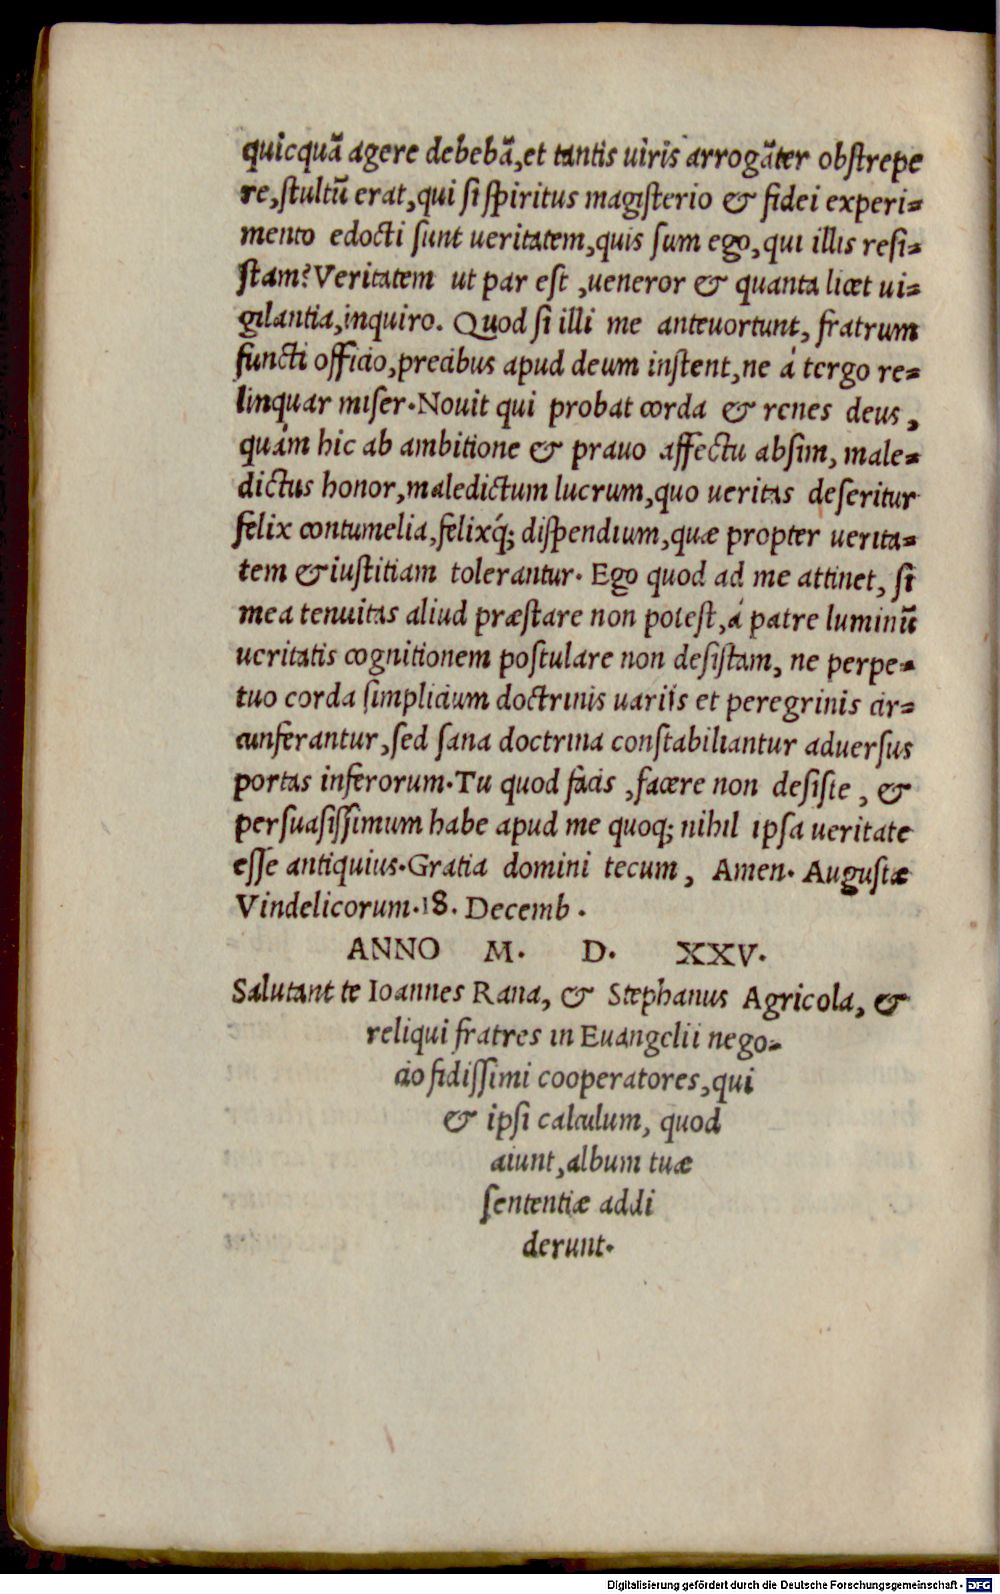 quicquã agere debebã, et tantis uiris arrogãter obstrepe
re, stultũ erat, qui si spiritus magisterio & fidei experi-
mento edocti sunt ueritatem, quis sum ego, qui illis resi-
stam? Veritatem ut par est, ueneror & quanta licet ui-
gilantia, inquiro. Quod si illi me anteuortunt, fratrum
functi officio, precibus apud deum instent, ne á tergo re-
linquar miser. Nouit qui probat corda & renes deus,
quám hic ab ambitione & prauo affectu absim, male-
dictus honor, maledictum lucrum, quo ueritas deseritur
felix contumelia, felixq́; dispendium, quæ propter uerita-
tem & iustitiam tolerantur. Ego quod ad me attinet, si
mea tenuitas aliud præstare non potest, á patre luminũ
ueritatis cognitionem postulare non desistam, ne perpe-
tuo corda simplicium doctrinis uariis et peregrinis cir-
cunferantur, sed sana doctrina constabiliantur aduersus
portas inferorum. Tu quod facis, facere non desiste, &
persuasissimum habe apud me quoq; nihil ipsa ueritate
esse antiquius. Gratia domini tecum, Amen. Augustæ
Vindelicorum. 18. Decemb.
ANNO M. D. XXV.
Salutant te Ioannes Rana, & Stephanus Agricola, &
reliqui fratres in Euangelii nego-
cio fidissimi cooperatores, qui
& ipsi calculum, quod
aiunt, album tuæ
sententiæ addi
derunt.
Digitalisierung gefördert durch die Deutsche Forschungsgemeinschaft - DFG